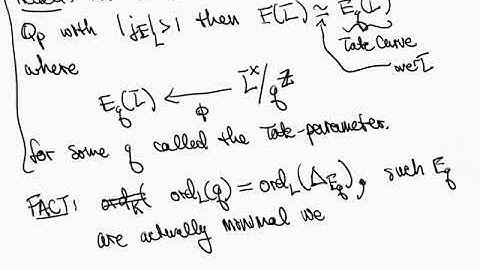 Q_p with |j_E|_L > 1 then E(L̄) ≃ E_q(L̄)
Tate curve
where
over L̄
E_q(L̄) ← L̄^×/q^ℤ
ϕ
for some q called the Tate-parameter.
FACT: ord_L(q) = ord_L(Δ_{E_q}), such E_q
are actually minimal we